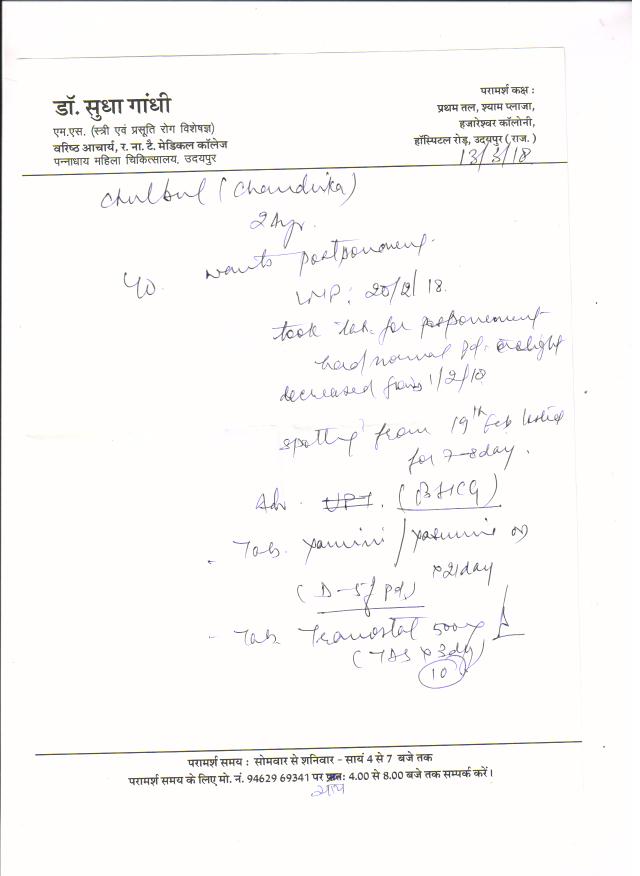 डॉ. सुधा गांधी
एम.एस. (स्त्री एवं प्रसूति रोग विशेषज्ञ)
वरिष्ठ आचार्य, र. ना. टै. मेडिकल कॉलेज
पन्नाधाय महिला चिकित्सालय, उदयपुर
परामर्श कक्ष :
प्रथम तल, श्याम प्लाजा,
हजारेश्वर कॉलोनी,
हॉस्पिटल रोड़, उदयपुर ( राज. )
13/3/18
Chulbul (Chandrika)
24yr.
wants postponement.
LMP: 20/2/18.
took tab. for postponement
had normal pd.
decreased from 1/2/18
spotting from 19th Feb lasted
for 7-8day.
Adv. UPT. (BHCG)
- Tab. Yamini / Yasmine OD
x 21day
(D-5 of pd.)
- Tab. 500mg
(TDS x 3dy)
10
परामर्श समय : सोमवार से शनिवार - सायं 4 से 7 बजे तक
परामर्श समय के लिए मो. नं. 94629 69341 पर प्रातः 4.00 से 8.00 बजे तक सम्पर्क करें।
सायं